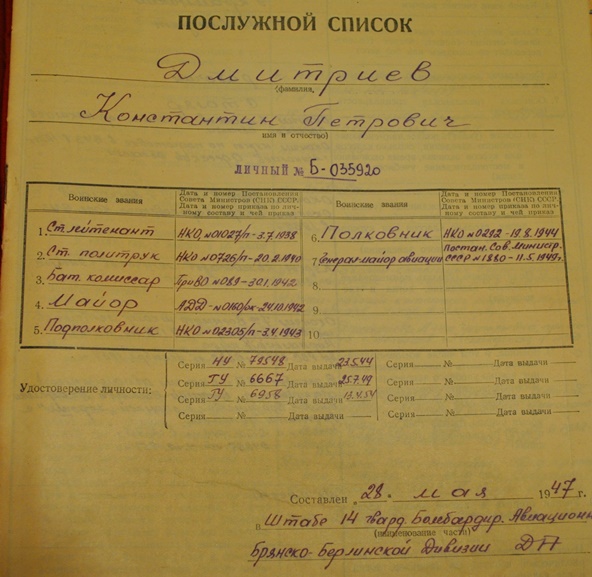 ПОСЛУЖНОЙ СПИСОК
Дмитриев
(фамилия,
Константин Петрович
имя и отчество)
ЛИЧНЫЙ № Б-035920
Воинские звания
Дата и номер Постановления Совета Министров (СНК) СССР. Дата и номер приказа по личному составу и чей приказ
Воинские звания
Дата и номер Постановления Совета Министров (СНК) СССР. Дата и номер приказа по личному составу и чей приказ
1. Ст. лейтенант НКО, №01027/п-3.7.1938
2. Ст. политрук НКО №0726/п-20.2.1940
3. Бат. комиссар ПриВО №089-30.1.1942
4. Майор АДД-№0160/ - 24.10.1942
5. Подполковник НКО №02305/п-3.4.1943
6. Полковник НКО №0292-19.8.1944
7. Генерал-майор авиации Постан. Сов. Минист. СССР №1880-11.5.1949г.
8
9
10
Удостоверение личности:
Серия НУ № 79548 Дата выдачи 23.5.44 Серия № Дата выдачи
Серия ТУ № 6667 Дата выдачи 25.7.49 Серия № Дата выдачи
Серия ГУ № 6958 Дата выдачи 13.4.54 Серия № Дата выдачи
Серия № Дата выдачи Серия № Дата выдачи
Составлен „28." мая 1947 г.
в Штабе 14 гвард. Бомбардир. Авиационн
(наименование части)
Брянско-Берлинской Дивизии ДД